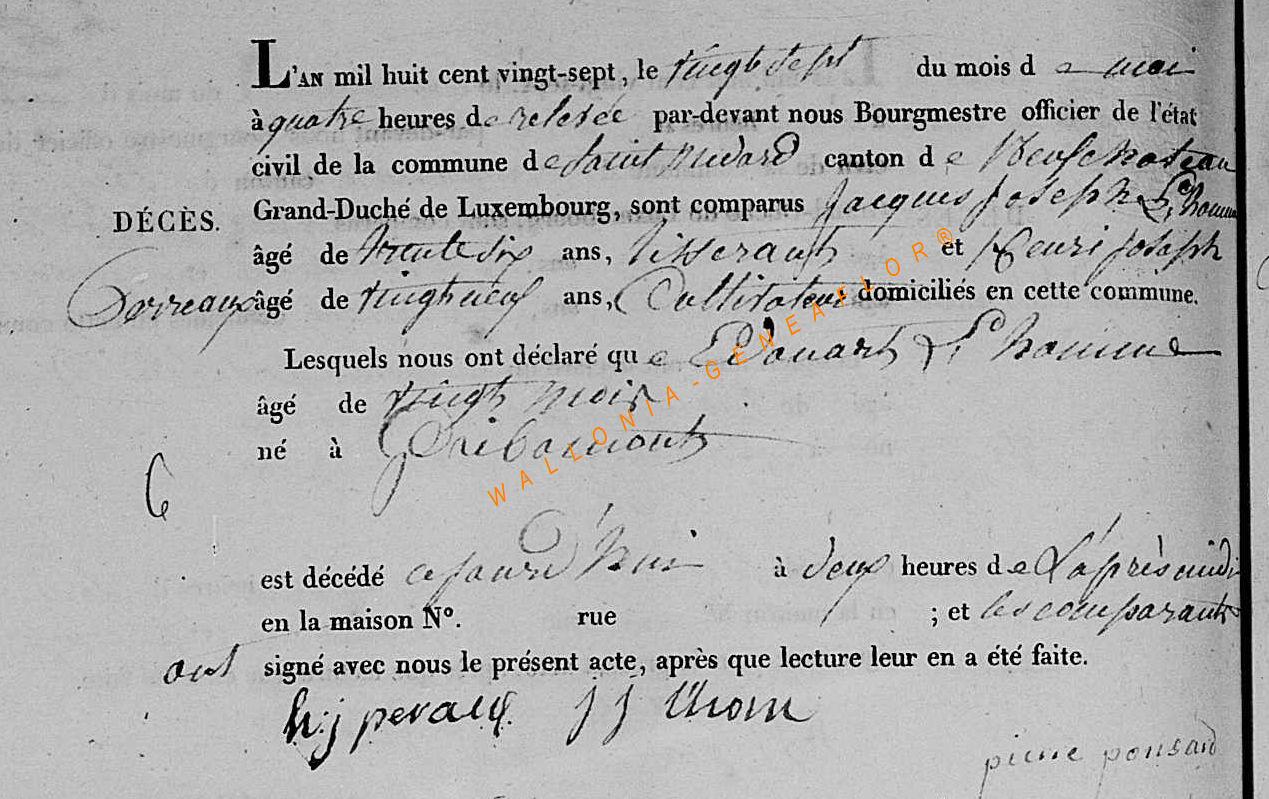 L'AN mil huit cent vingt-sept, le vingt sept du mois de mai
à quatre heures de relevée par-devant nous Bourgmestre officier de l'état
civil de la commune de Saint Medard canton de Neufchateau
Grand-Duché de Luxembourg, sont comparus Jacques Joseph L'homme
DÉCÈS.
âgé de trente six ans, tisserant et Henri Joseph
âgé de vingt neuf ans, Cultivateur domiciliés en cette commune.
Lesquels nous ont déclaré que Edouard L'homme
âgé de vingt mois
né à Gribomont
6
est décédé cejourd'hui à deux heures de L'après midi
en la maison N°. rue ; et les comparants
ont signé avec nous le présent acte, après que lecture leur en a été faite.
h: j j j Lhom
pierre ponsard
WALLONIA-GENEAFLOR®